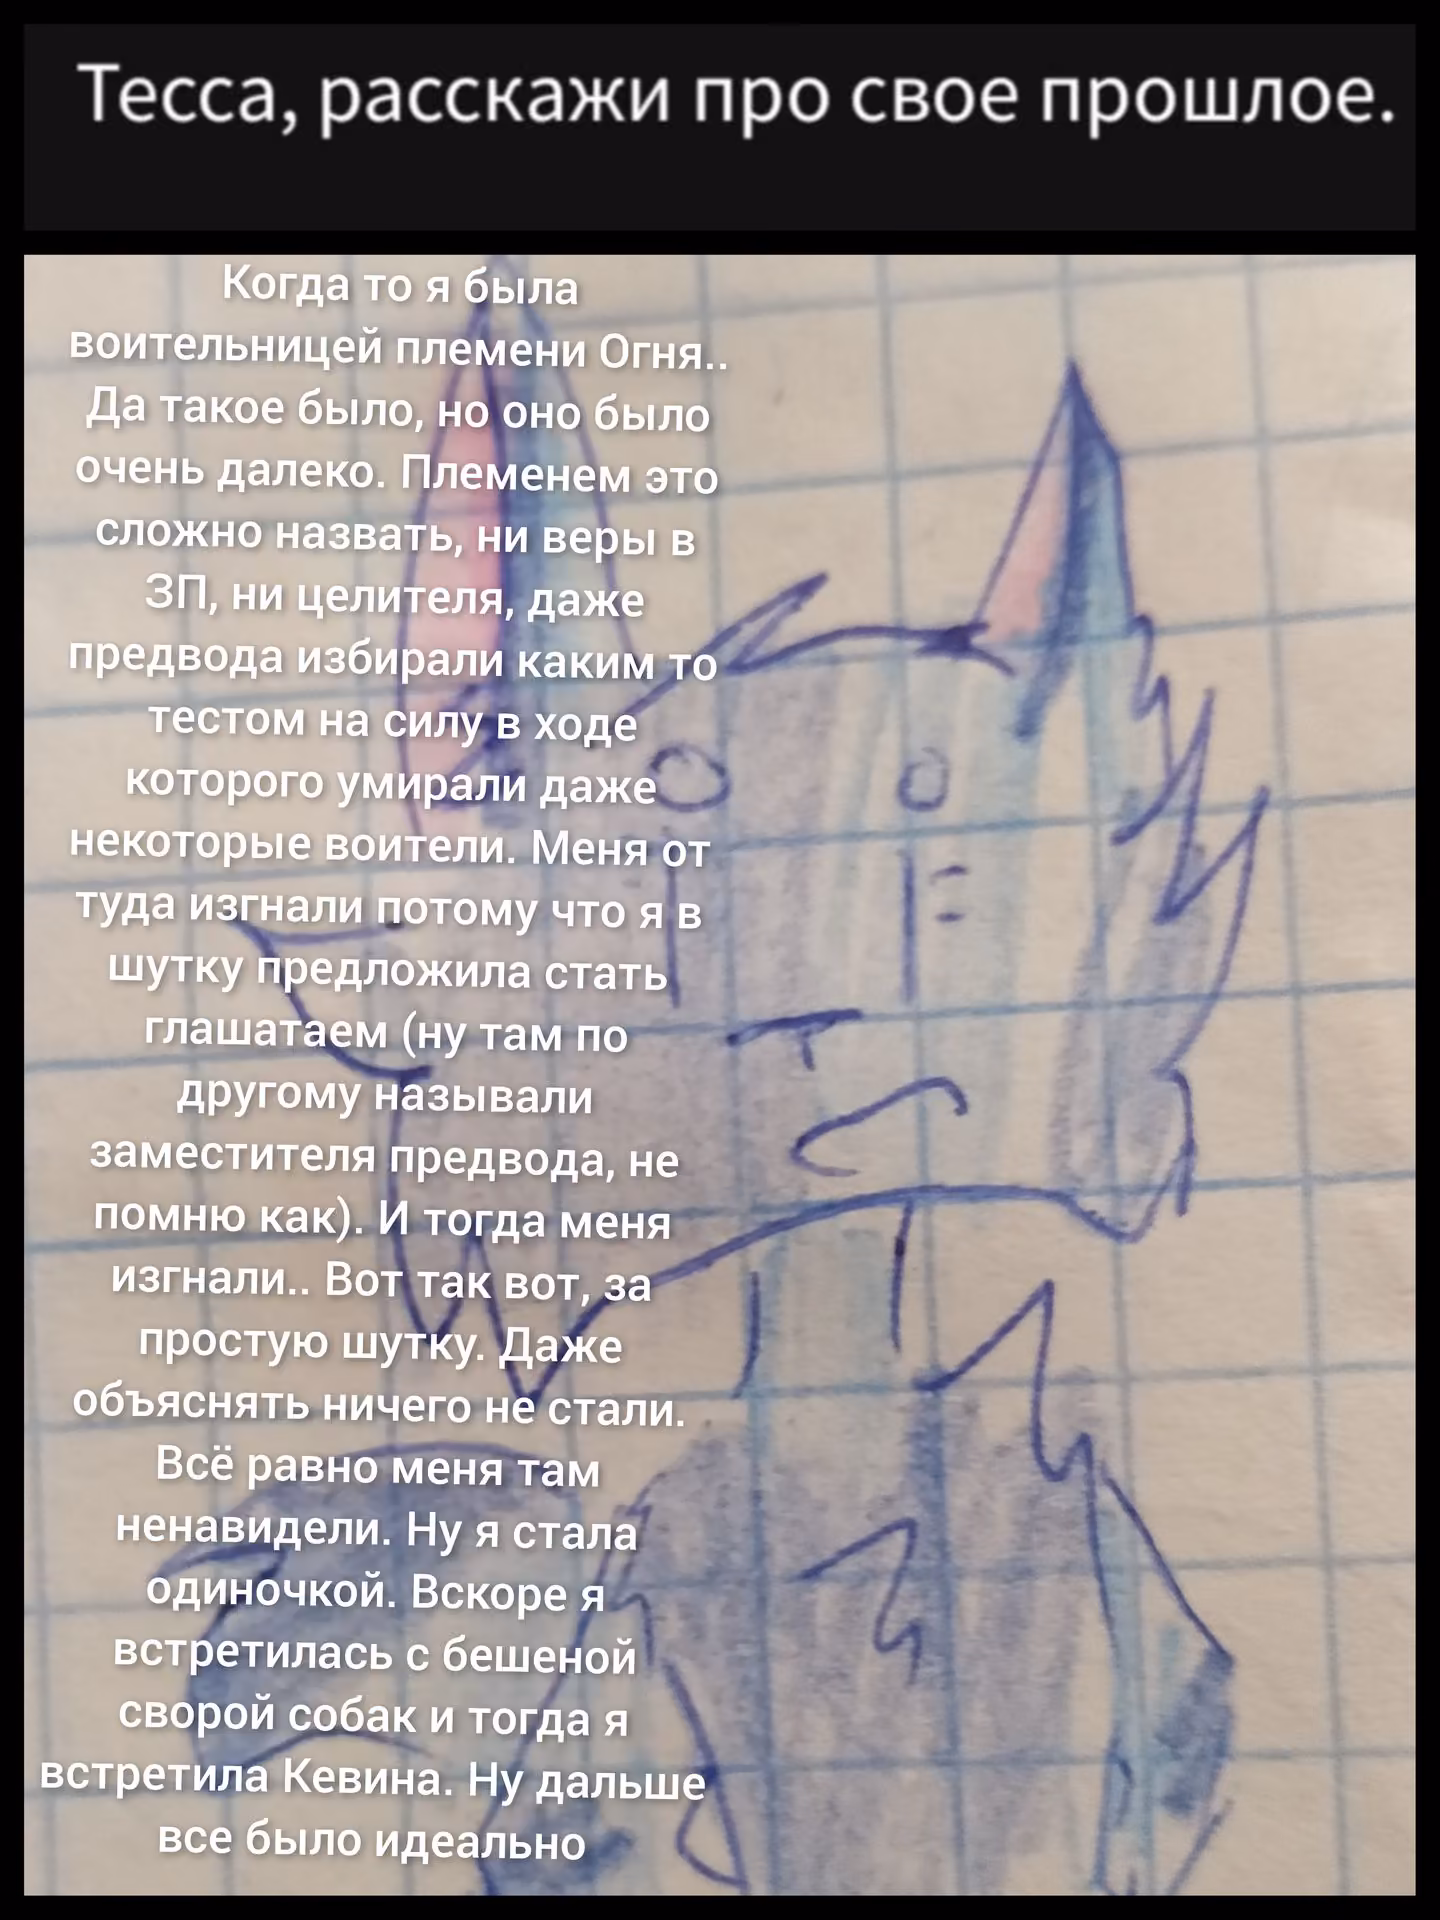 Тесса, расскажи про свое прошлое.
Когда то я была
воительницей племени Огня..
Да такое было, но оно было
очень далеко. Племенем это
сложно назвать, ни веры в
ЗП, ни целителя, даже
предвода избирали каким то
тестом на силу в ходе
которого умирали даже
некоторые воители. Меня от
туда изгнали потому что я в
шутку предложила стать
глашатаем (ну там по
другому называли
заместителя предвода, не
помню как). И тогда меня
изгнали.. Вот так вот, за
простую шутку. Даже
объяснять ничего не стали.
Всё равно меня там
ненавидели. Ну я стала
одиночкой. Вскоре я
встретилась с бешеной
сворой собак и тогда я
встретила Кевина. Ну дальше
все было идеально